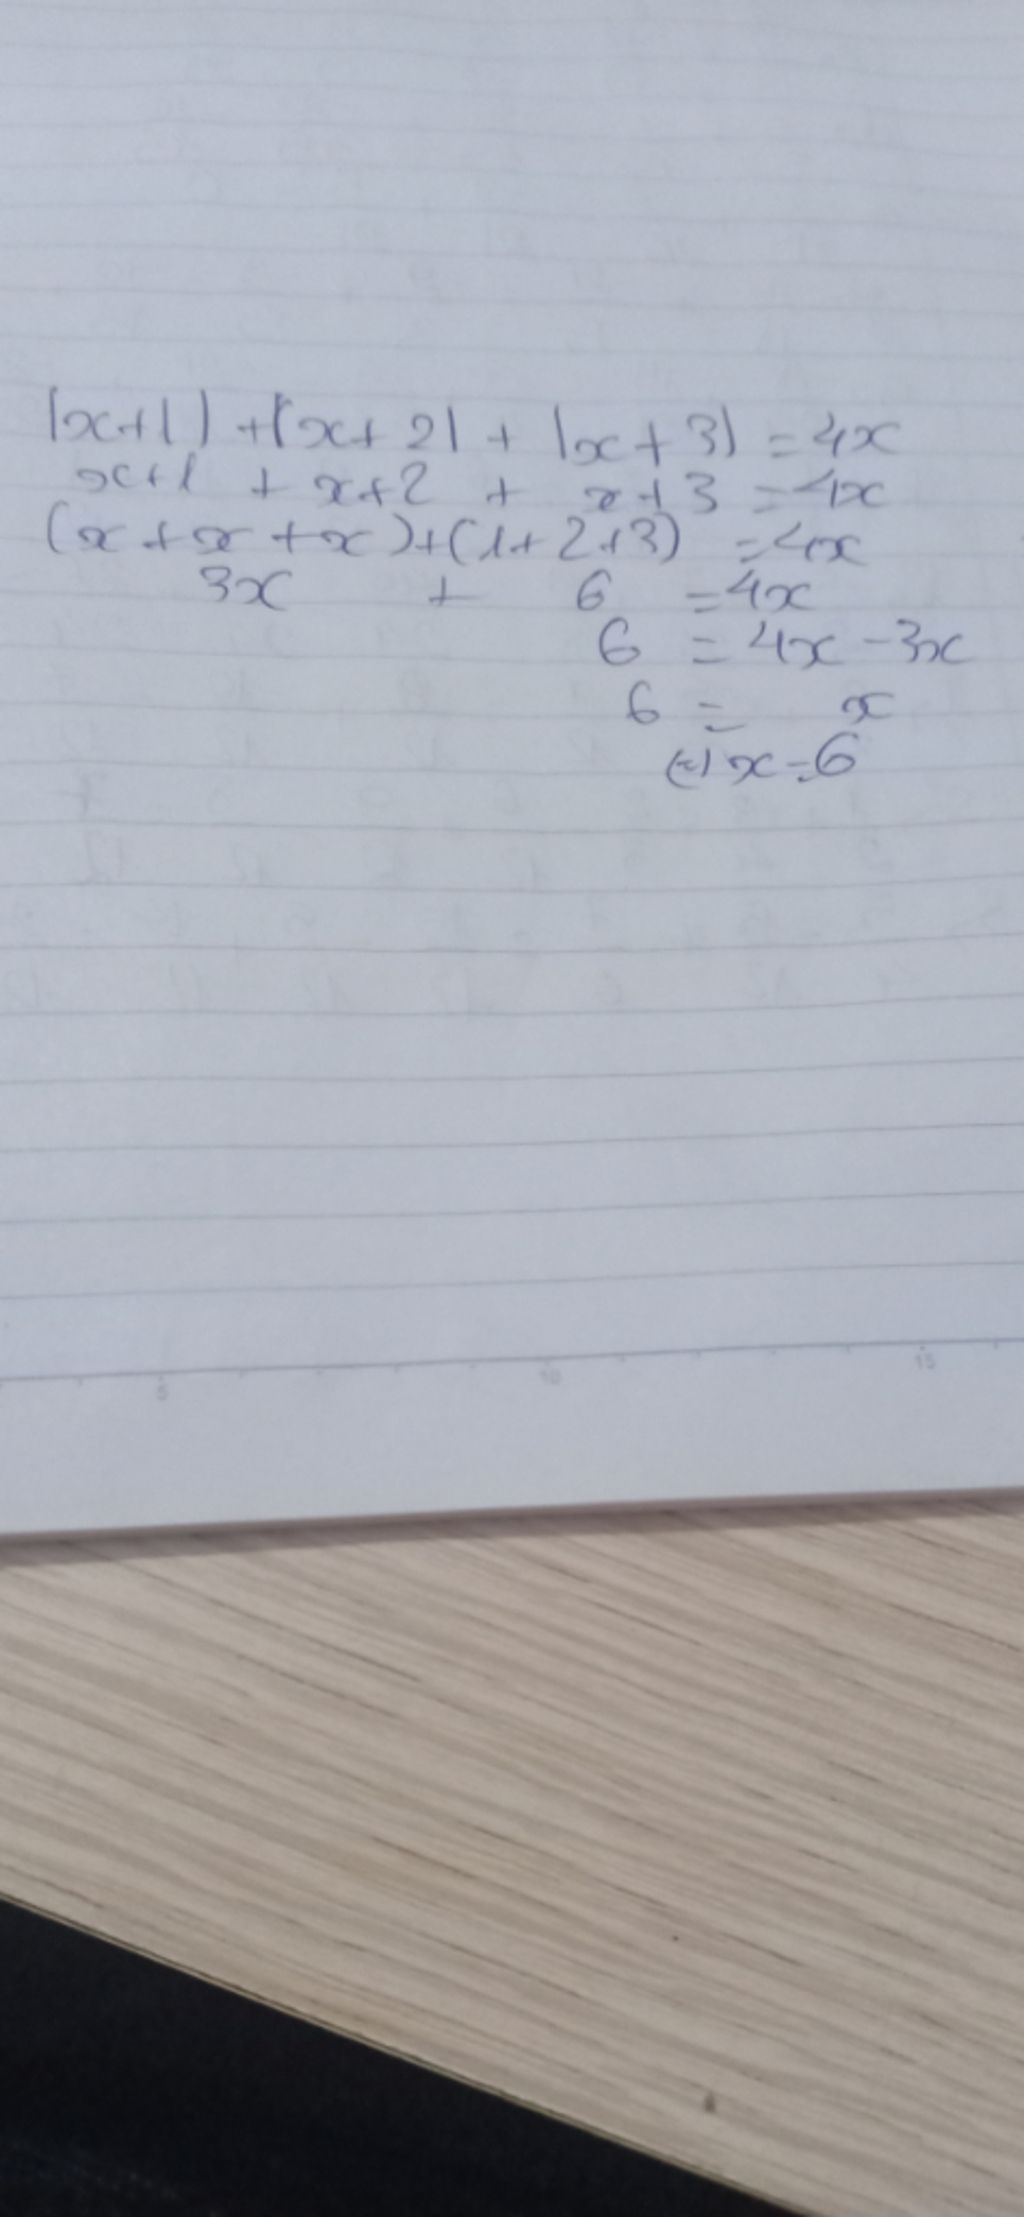 |x+1| + |x+2| + |x+3| = 4x
x+1 + x+2 + x+3 = 4x
(x+x+x)+(1+2+3) = 4x
3x + 6 = 4x
6 = 4x-3x
6 = x
(=) x=6
5 10 15